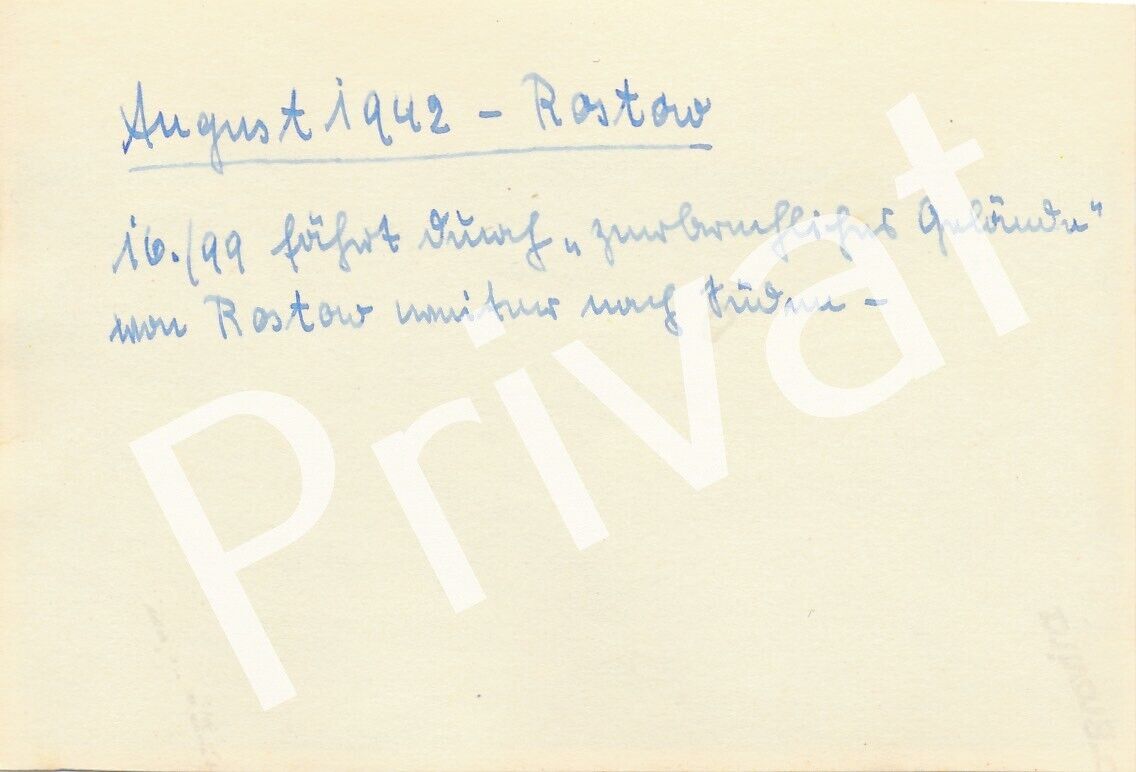 August 1942 - Rostow
16./99 fährt durch „zerbrechliches Gelände“
von Rostow weiter nach Süden –
Privat